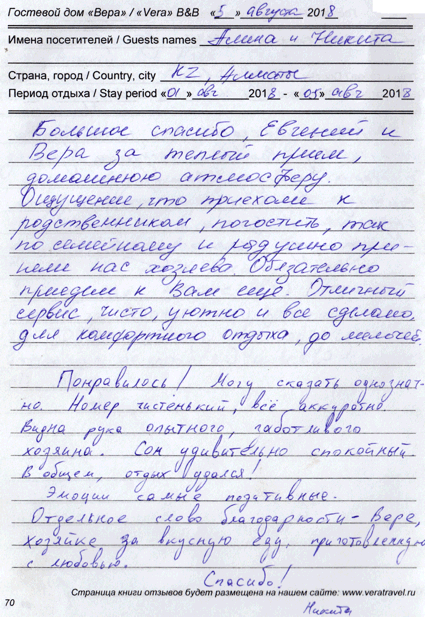 Гостевой дом «Вера» / «Vera» B&B «5» август 2018
Имена посетителей / Guests names Алина и Никита
Страна, город / Country, city KZ, Алматы
Период отдыха / Stay period «01» авг 2018 - «05» авг 2018
Большое спасибо, Евгений и
Вера за теплый прием,
домашнюю атмосферу.
Ощущение, что приехали к
родственникам, погостить, так
по семейному и радушно при-
няли нас хозяева. Обязательно
приедем к Вам еще. Отличный
сервис, чисто, уютно и все сделано,
для комфортного отдыха, до мелочей.
Понравилось! Могу сказать однознач-
но. Номер чистенький, всё аккуратно.
Видна рука опытного, заботливого
хозяина. Сон удивительно спокойный.
В общем, отдых удался!
Эмоции самые позитивные.
Отдельное слово благодарности - Вере,
хозяйке за вкусную еду, приготовленную
с любовью.
Спасибо!
Страница книги отзывов будет размещена на нашем сайте: www.veratravel.ru
70
Никита